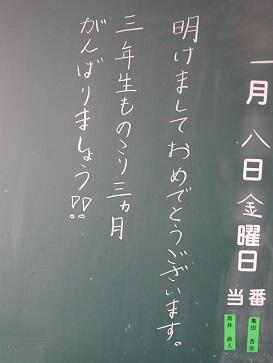 一月八日金曜日
当番
亀田 杏奈
髙井 直人
明けましておめでとうございます。
三年生ものこり三ヵ月
がんばりましょう!!